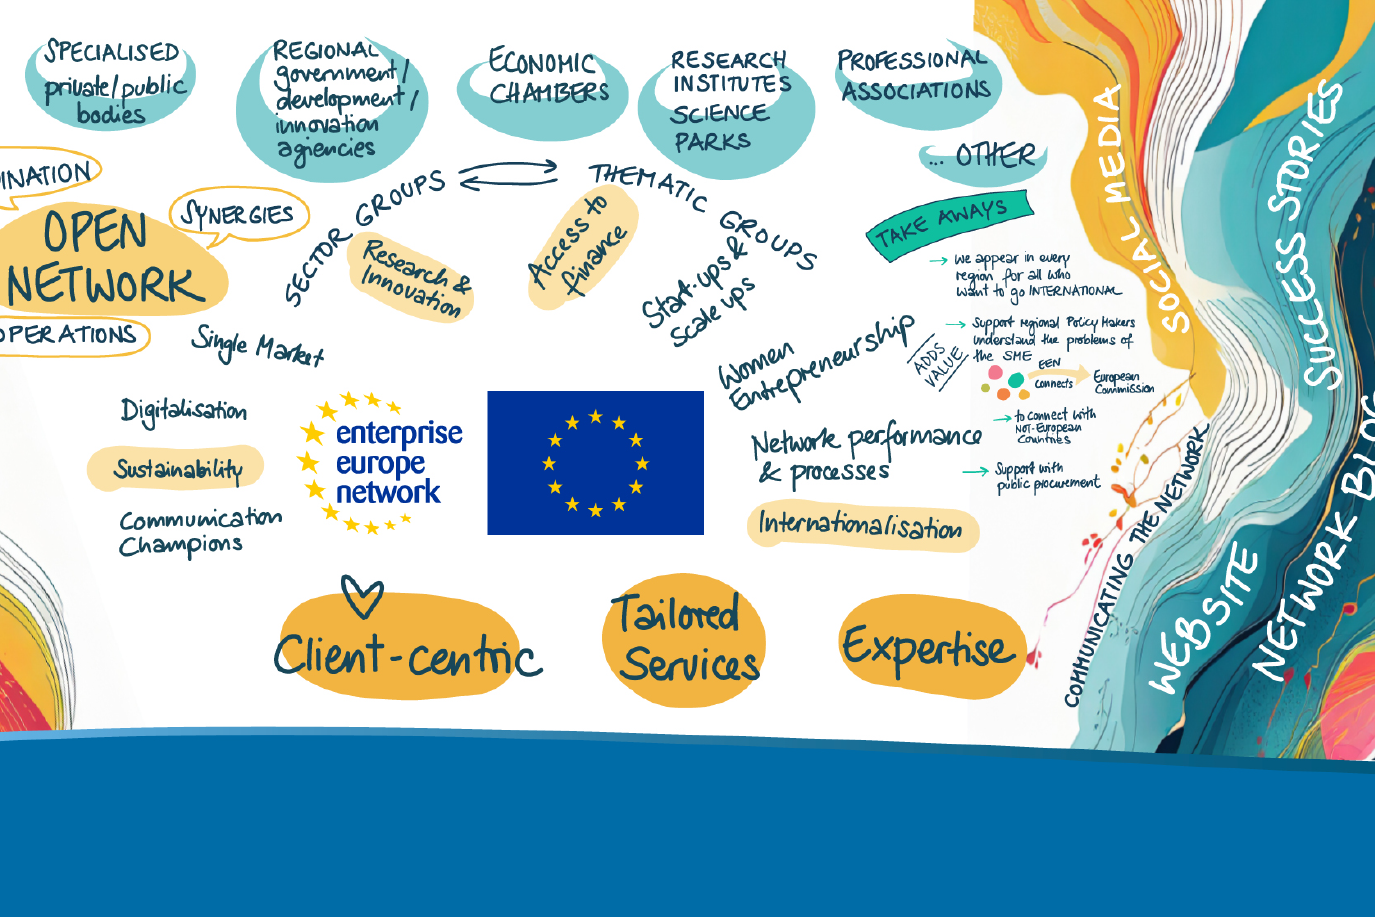 SPECIALISED
private/public
bodies
REGIONAL
government/
development/
innovation
agiencies
ECONOMIC
CHAMBERS
RESEARCH
INSTITUTES
SCIENCE
PARKS
PROFESSIONAL
ASSOCIATIONS
... OTHER
INATION
OPEN
NETWORK
SYNERGIES
OPERATIONS
SECTOR GROUPS
THEMATIC GROUPS
Single Market
Research &
Innovation
Access to
finance
Start-ups &
Scale ups
Women
Entrepreneurship
Digitalisation
Sustainability
Communication
Champions
enterprise
europe
network
Network performance
& processes
Internationalisation
TAKE AWAYS
we appear in every
region for all who
want to go INTERNATIONAL
ADDS
VALUE
Support regional Policy Makers
understand the problems of
the SME
EEN
connects
European
Commission
to connect with
NOT-European
Countries
Support with
public procurement
Client-centric
Tailored
Services
Expertise
COMMUNICATING THE NETWORK
SOCIAL MEDIA
SUCCESS STORIES
WEBSITE
NETWORK BLOG